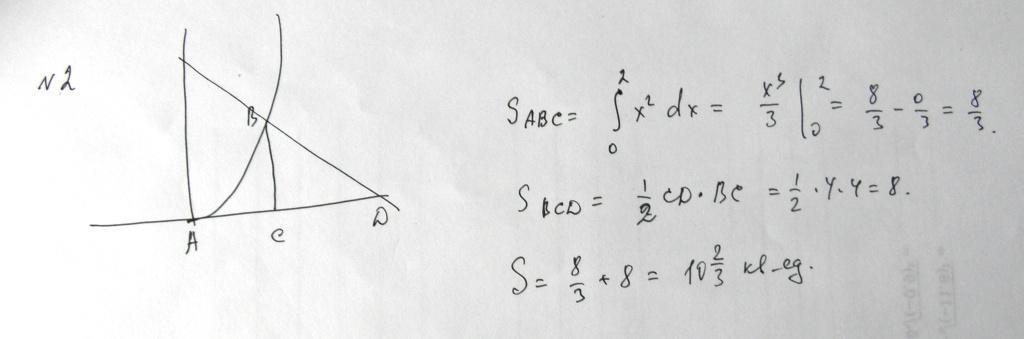 N2
B
A
C
D
S ABC = ∫₀² x² dx = x³/3 |₀² = 8/3 - 0/3 = 8/3.
S BCD = 1/2 CD · BC = 1/2 · 4 · 4 = 8.
S = 8/3 + 8 = 10 2/3